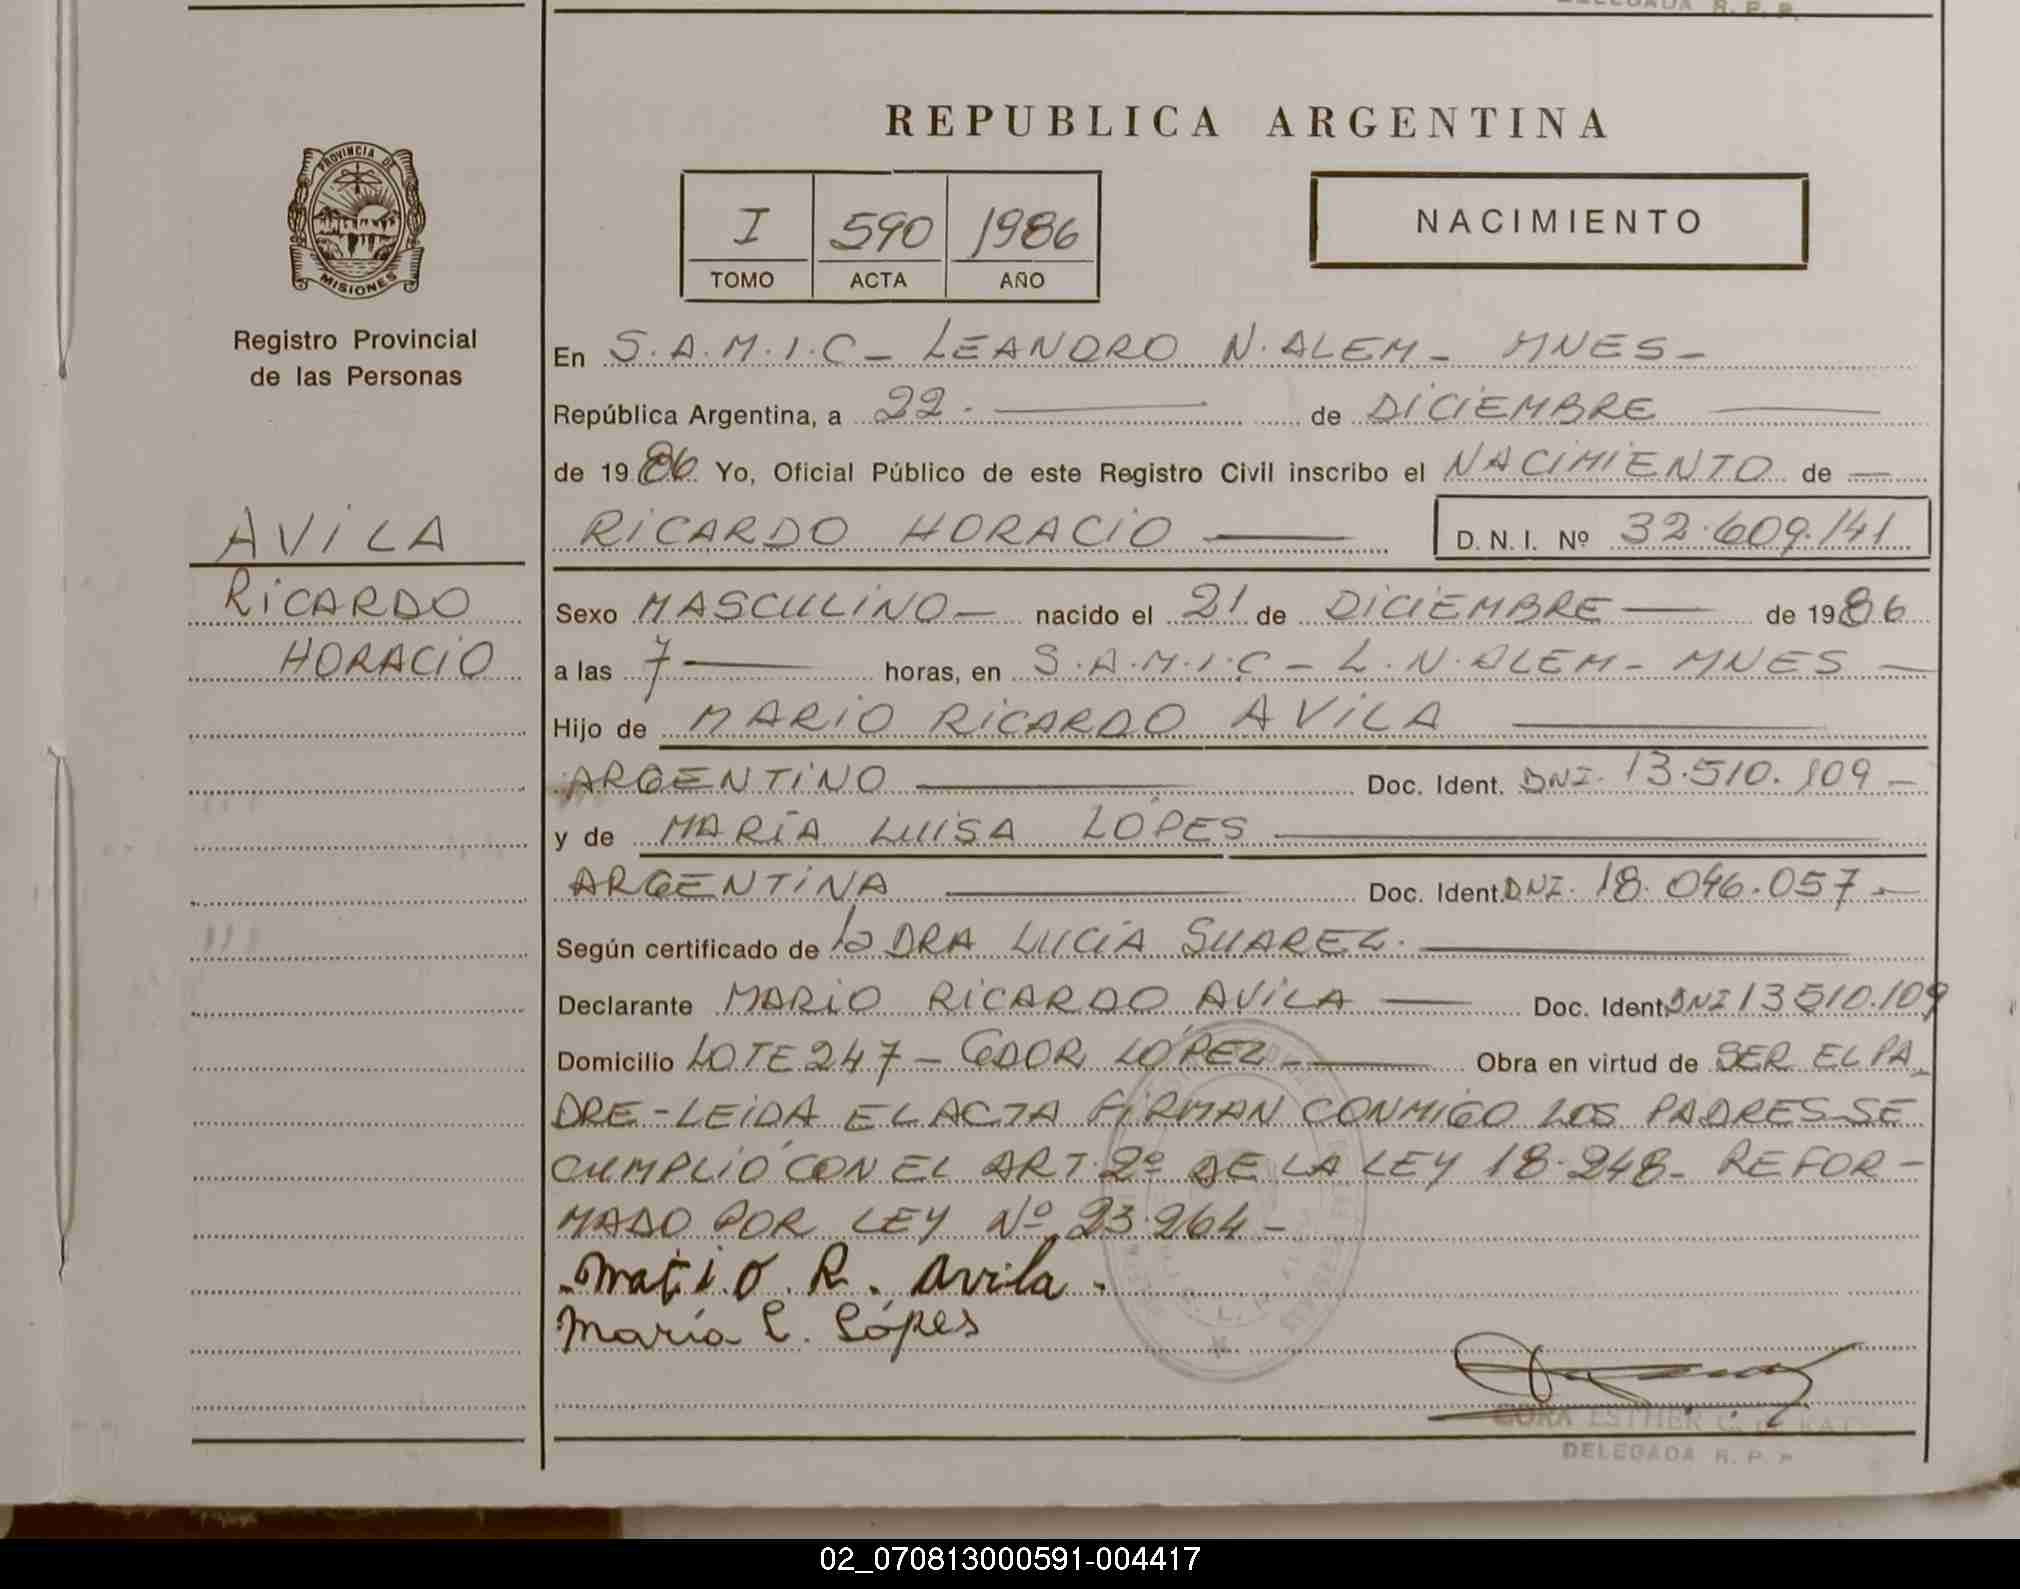 DELEGADA R. P. P.
REPUBLICA ARGENTINA
PROVINCIA DE
MISIONES
I 590 1986
TOMO ACTA AÑO
NACIMIENTO
Registro Provincial
de las Personas
En S.A.M.I.C - LEANDRO N. ALEM - MNES -
República Argentina, a 22. de DICIEMBRE
de 1986 Yo, Oficial Público de este Registro Civil inscribo el NACIMIENTO de
AVILA
RICARDO HORACIO D. N. I. Nº 32.609.141
RICARDO
HORACIO
Sexo MASCULINO - nacido el 21 de DICIEMBRE de 1986
a las 7 horas, en S.A.M.I.C - L.N. ALEM - MNES -
Hijo de MARIO RICARDO AVILA
ARGENTINO Doc. Ident. DNI. 13.510.109 -
y de MARÍA LUISA LÓPES
ARGENTINA Doc. Ident. DNI. 18.046.057 -
Según certificado de la DRA LUCÍA SUAREZ.
Declarante MARIO RICARDO AVILA Doc. Ident. DNI 13510.109
Domicilio LOTE 247 - GDOR LÓPEZ - Obra en virtud de SER EL PA_
DRE - LEIDA EL ACTA FIRMAN CONMIGO LOS PADRES - SE
CUMPLIÓ CON EL ART. 2º DE LA LEY 18.248 - REFOR -
MADO POR LEY Nº 23.264 -
Mario R. Avila.
María L. Lópes
ESTHER C.
DELEGADA R. P. P
02_070813000591-004417